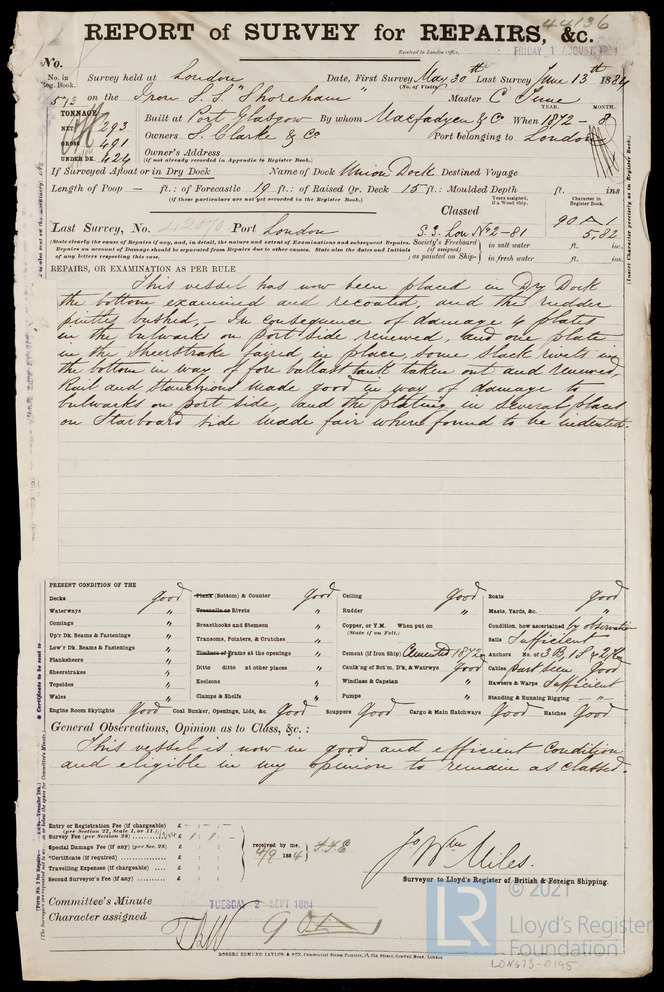 44136
REPORT of SURVEY for REPAIRS, &c.
Received in London Office, FRIDAY 1 AUGUST 1884
No.
No. in Reg. Book. Survey held at London Date, First Survey May 30th Last Survey June 13th 1884
(No. of Visits)
573 on the Iron S.S. "Shoreham" Master C June
TONNAGE
YEAR. MONTH.
NET 293 Built at Port Glasgow By whom Macfadyen & Co When 1872 - 8
GROSS 491 Owners S. Clarke & Co Port belonging to London
UNDER DK. 424 Owner's Address
(if not already recorded in Appendix to Register Book.)
If Surveyed Afloat or in Dry Dock Name of Dock Union Dock Destined Voyage
Length of Poop — ft.: of Forecastle 19 ft.: of Raised Qr. Deck 15 ft.: Moulded Depth ft. ins
(if these particulars are not yet recorded in the Register Book.)
Years assigned, if a Wood ship. Character in Register Book.
Classed
90 A 1
Last Survey, No. 42070 Port London S.S. Lon No 2-81 5,82
(State clearly the cause of Repairs if any, and, in detail, the nature and extent of Examinations and subsequent Repairs. Repairs on account of Damage should be separated from Repairs due to other causes. State also the dates and Initials of any letters respecting this case.
Society's Freeboard (if assigned) as painted on Ship— in salt water ft. in.
in fresh water ft. in.
REPAIRS, OR EXAMINATION AS PER RULE
This vessel has now been placed in Dry Dock
the bottom examined and recoated, and the rudder
pintles bushed. — In consequence of damage 4 plates
in the bulwarks on port side renewed, and one plate
in the Sheerstrake faired in place, some slack rivets in
the bottom in way of fore ballast tank taken out and renewed,
Rail and Stanchions made good in way of damage to
bulwarks on port side, and the plating in several places
on Starboard side made fair where found to be indented.
PRESENT CONDITION OF THE
Decks good
Waterways "
Comings "
Up'r Dk. Beams & Fastenings "
Low'r Dk. Beams & Fastenings "
Planksheers "
Sheerstrakes "
Topsides "
Wales "
Engine Room Skylights Good
Plank (Bottom) & Counter good
Treenails or Rivets "
Breasthooks and Stemson "
Transoms, Pointers, & Crutches "
Timbers or Frame at the openings "
Ditto ditto at other places "
Keelsons "
Clamps & Shelfs "
Coal Bunker, Openings, Lids, &c. Good
Ceiling good
Rudder "
Copper, or Y.M. When put on
(State if on Felt.)
Cement (if Iron Ship) Cemented 1872
Caulk'ng of Bot'm, D'k, & Watrwys Good
Windlass & Capstan "
Pumps "
Scuppers Good Cargo & Main Hatchways Good
Boats good
Masts, Yards, &c. "
Condition, how ascertained by observation
Sails Sufficient
Anchors No. of 3 B. 1 S & 2 K
Cables Good
Hawsers & Warps Sufficient
Standing & Running Rigging "
Hatches Good
General Observations, Opinion as to Class, &c.:
This vessel is now in good and efficient condition
and eligible in my opinion to remain as classed.
Entry or Registration Fee (if chargeable) £
(per Section 27, Scale I. or II.)
Survey Fee (per Section 28) £ 1 : 1 : -
Special Damage Fee (if any) (per Sec. 28) £
*Certificate (if required) £
Travelling Expenses (if chargeable) £
Second Surveyor's Fee (if any) £
received by me, 4/9 1884
Jo Wm Miles.
Surveyor to Lloyd's Register of British & Foreign Shipping.
Committee's Minute TUESDAY 2 SEPT 1884
Character assigned 90 A 1
ROBERT EDMUND TAYLOR & SON, Commercial Steam Printers, London
© 2021
LR Lloyd's Register
Foundation
LON673-0195